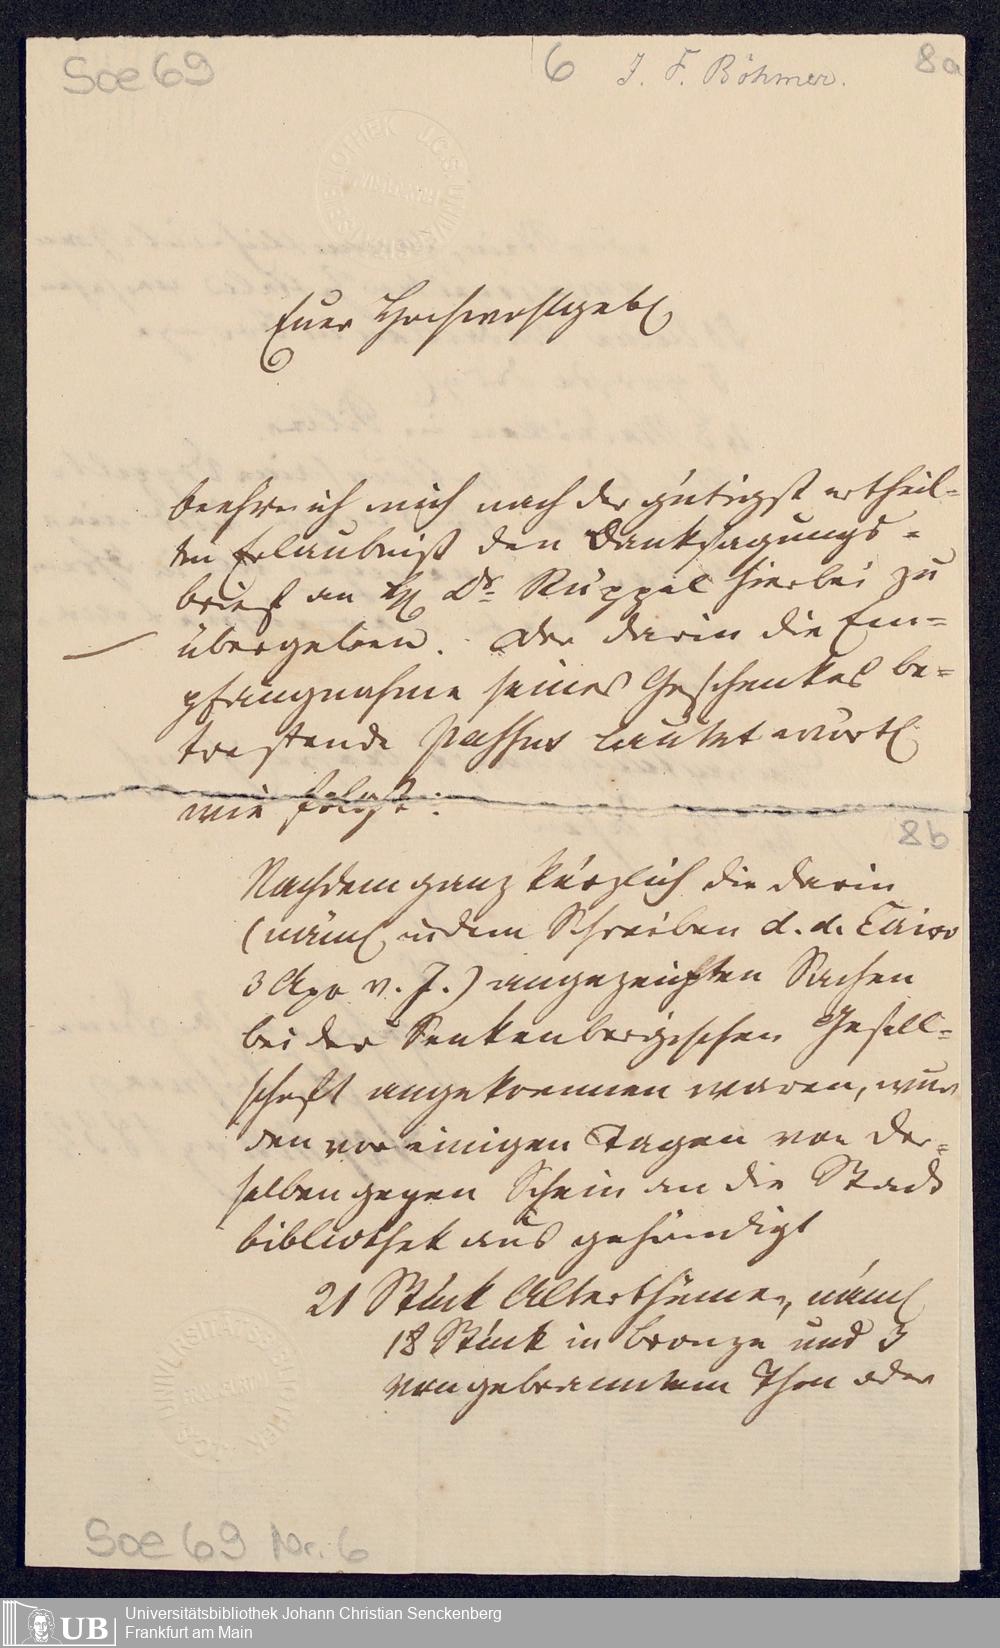 Soe 69
6 J. F. Böhmer.
8a
Euer Hochwohlgeb.
beehre ich mich nach der gütigst ertheil-
ten Erlaubniß den Danksagungs-
brief an H. Dr. Rüppel hierbei zu
übergeben. Der darin die Em-
pfangnahme seines Geschenkes be-
treffende Passus lautet wörtl.
wie folgt:
8b
Nachdem ganz kürzlich die darin
(näml. in dem Schreiben d. d. Cairo
3 Apr v. J.) angezeigten Sachen
bei der Senkenbergischen Gesell-
schaft angekommen waren, wur
den vor einigen Tagen von der-
selben gegen Schein an die Stadt
bibliothek aus gehändigt
21 Stück Alterthümer, näml.
18 Stück in Bronze und 3
von gebranntem Thon oder
Soe 69 Nr. 6
UB
Universitätsbibliothek Johann Christian Senckenberg
Frankfurt am Main